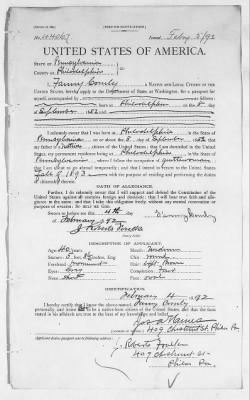 No. 44067 Issued Feby 5/92
UNITED STATES OF AMERICA.
STATE OF Pennsylvania
COUNTY OF Philadelphia
I, Fanny Comly, a NATIVE AND LOYAL CITIZEN OF THE
UNITED STATES, hereby apply to the Department of State, at Washington, for a passport for
myself, accompanied by
born at Philadelphia on the 5
of September 1852
I solemnly swear that I was born at Philadelphia, in the State of
Pennsylvania on the 5 day of September 1852 that
my father is a Native citizen of the United States; that I am domiciled in the United
States, my permanent residence being at Philadelphia, in the State of
Pennsylvania, where I follow the occupation of gentlewoman
that I am about to go abroad temporarily; and that I intend to return to the United States
with the purpose of residing and performing the duties
of citizenship therein.
OATH OF ALLEGIANCE.
Further, I do solemnly swear that I will support and defend the Constitution of the
United States against all enemies, foreign and domestic; that I will bear true faith and
allegiance to the same; and that I take this obligation freely, without any mental reservation
or purpose of evasion: SO HELP ME GOD.
Sworn to before me this 4th day
of February 1892
Fanny Comly
DESCRIPTION OF APPLICANT.
Age: 40 years.
Stature: 5 feet, inches, Eng.
Forehead: prominent
Eyes: Grey
Nose:
Mouth: medium
Chin: round
Hair:
Complexion: fair
Face: oval
IDENTIFICATION.
February 4 1892
I hereby certify that I know the above named Fanny Comly
personally, and know her to be a native-born citizen of the United States, and that the facts
stated in her affidavit are true to the best of my knowledge and belief.
409 Chestnut St. Phila Pa
Applicant desires passport sent to following address:
409 Chestnut St
Phila Pa.